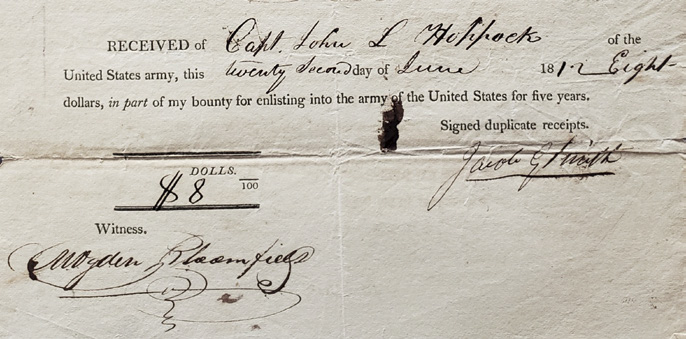 RECEIVED of Capt. John L Hoppock of the
United States army, this twenty Second day of June 1812 Eight
dollars, in part of my bounty for enlisting into the army of the United States for five years.
Signed duplicate receipts.
Jacob G Smith
DOLLS. /100
$8
Witness.
Ogden Bloomfield